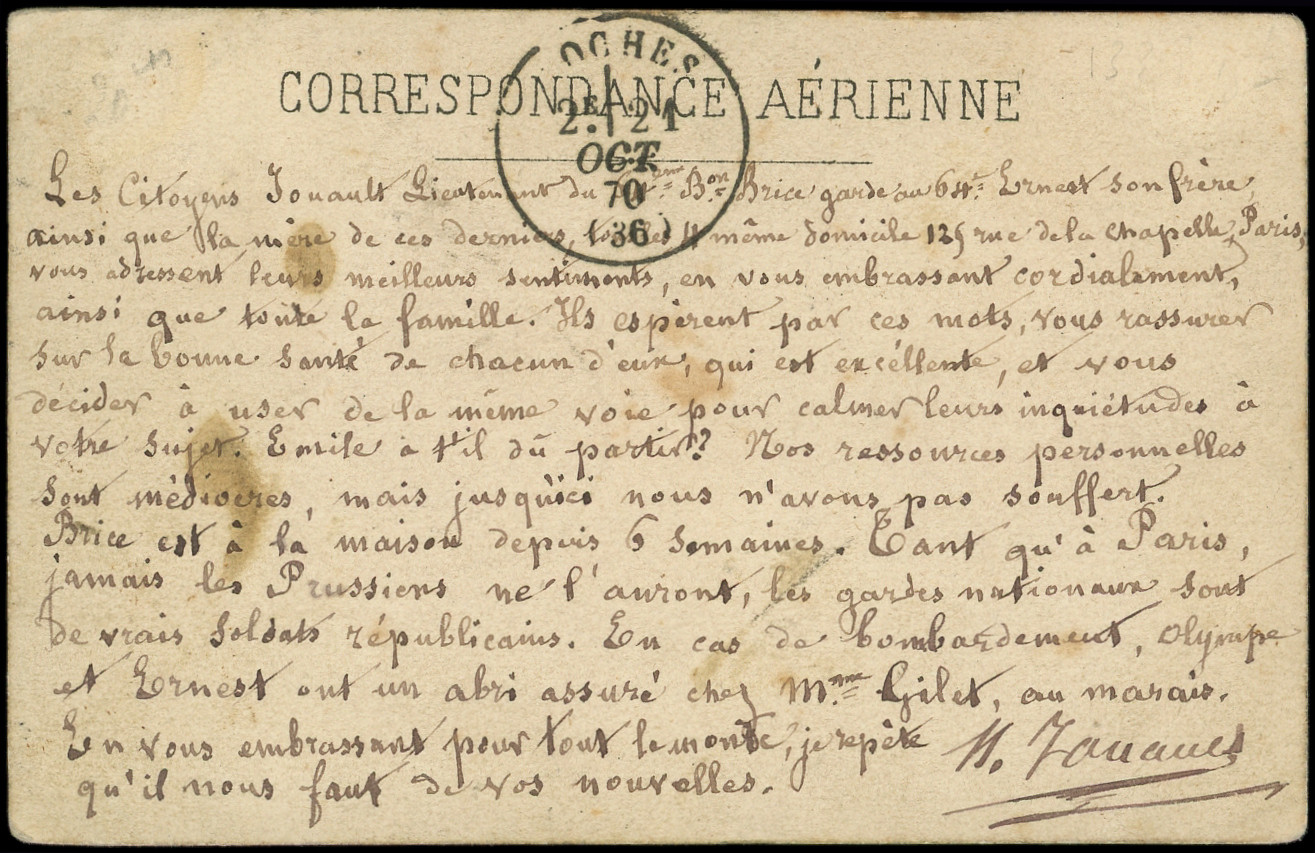 CORRESPONDANCE AÉRIENNE
OCHES
2E. 21
OCT.
70
(36)
Les Citoyens Jouault Lieutenant du Bon Brice garde au 64e Ernest son frère,
ainsi que la mère de ces derniers, tous les 4 même domicile 125 rue de la chapelle, Paris,
vous adressent leurs meilleurs sentiments, en vous embrassant cordialement,
ainsi que toute la famille. Ils espèrent par ces mots, vous rassurer
sur la bonne santé de chacun d'eux, qui est excéllente, et vous
décider à user de la même voie pour calmer leurs inquiétudes à
votre sujet. Emile a t'il dû partir? Nos ressources personnelles
sont médiocres, mais jusqu'ici nous n'avons pas souffert.
Brice est à la maison depuis 6 semaines. Tant qu'à Paris,
jamais les Prussiens ne l'auront, les gardes nationaux sont
de vrais soldats républicains. En cas de bombardement, Olympe
et Ernest ont un abri assuré chez Mme Gilet, au marais.
En vous embrassant pour tout le monde, je repète
qu'il nous faut de vos nouvelles.
H. Jouault